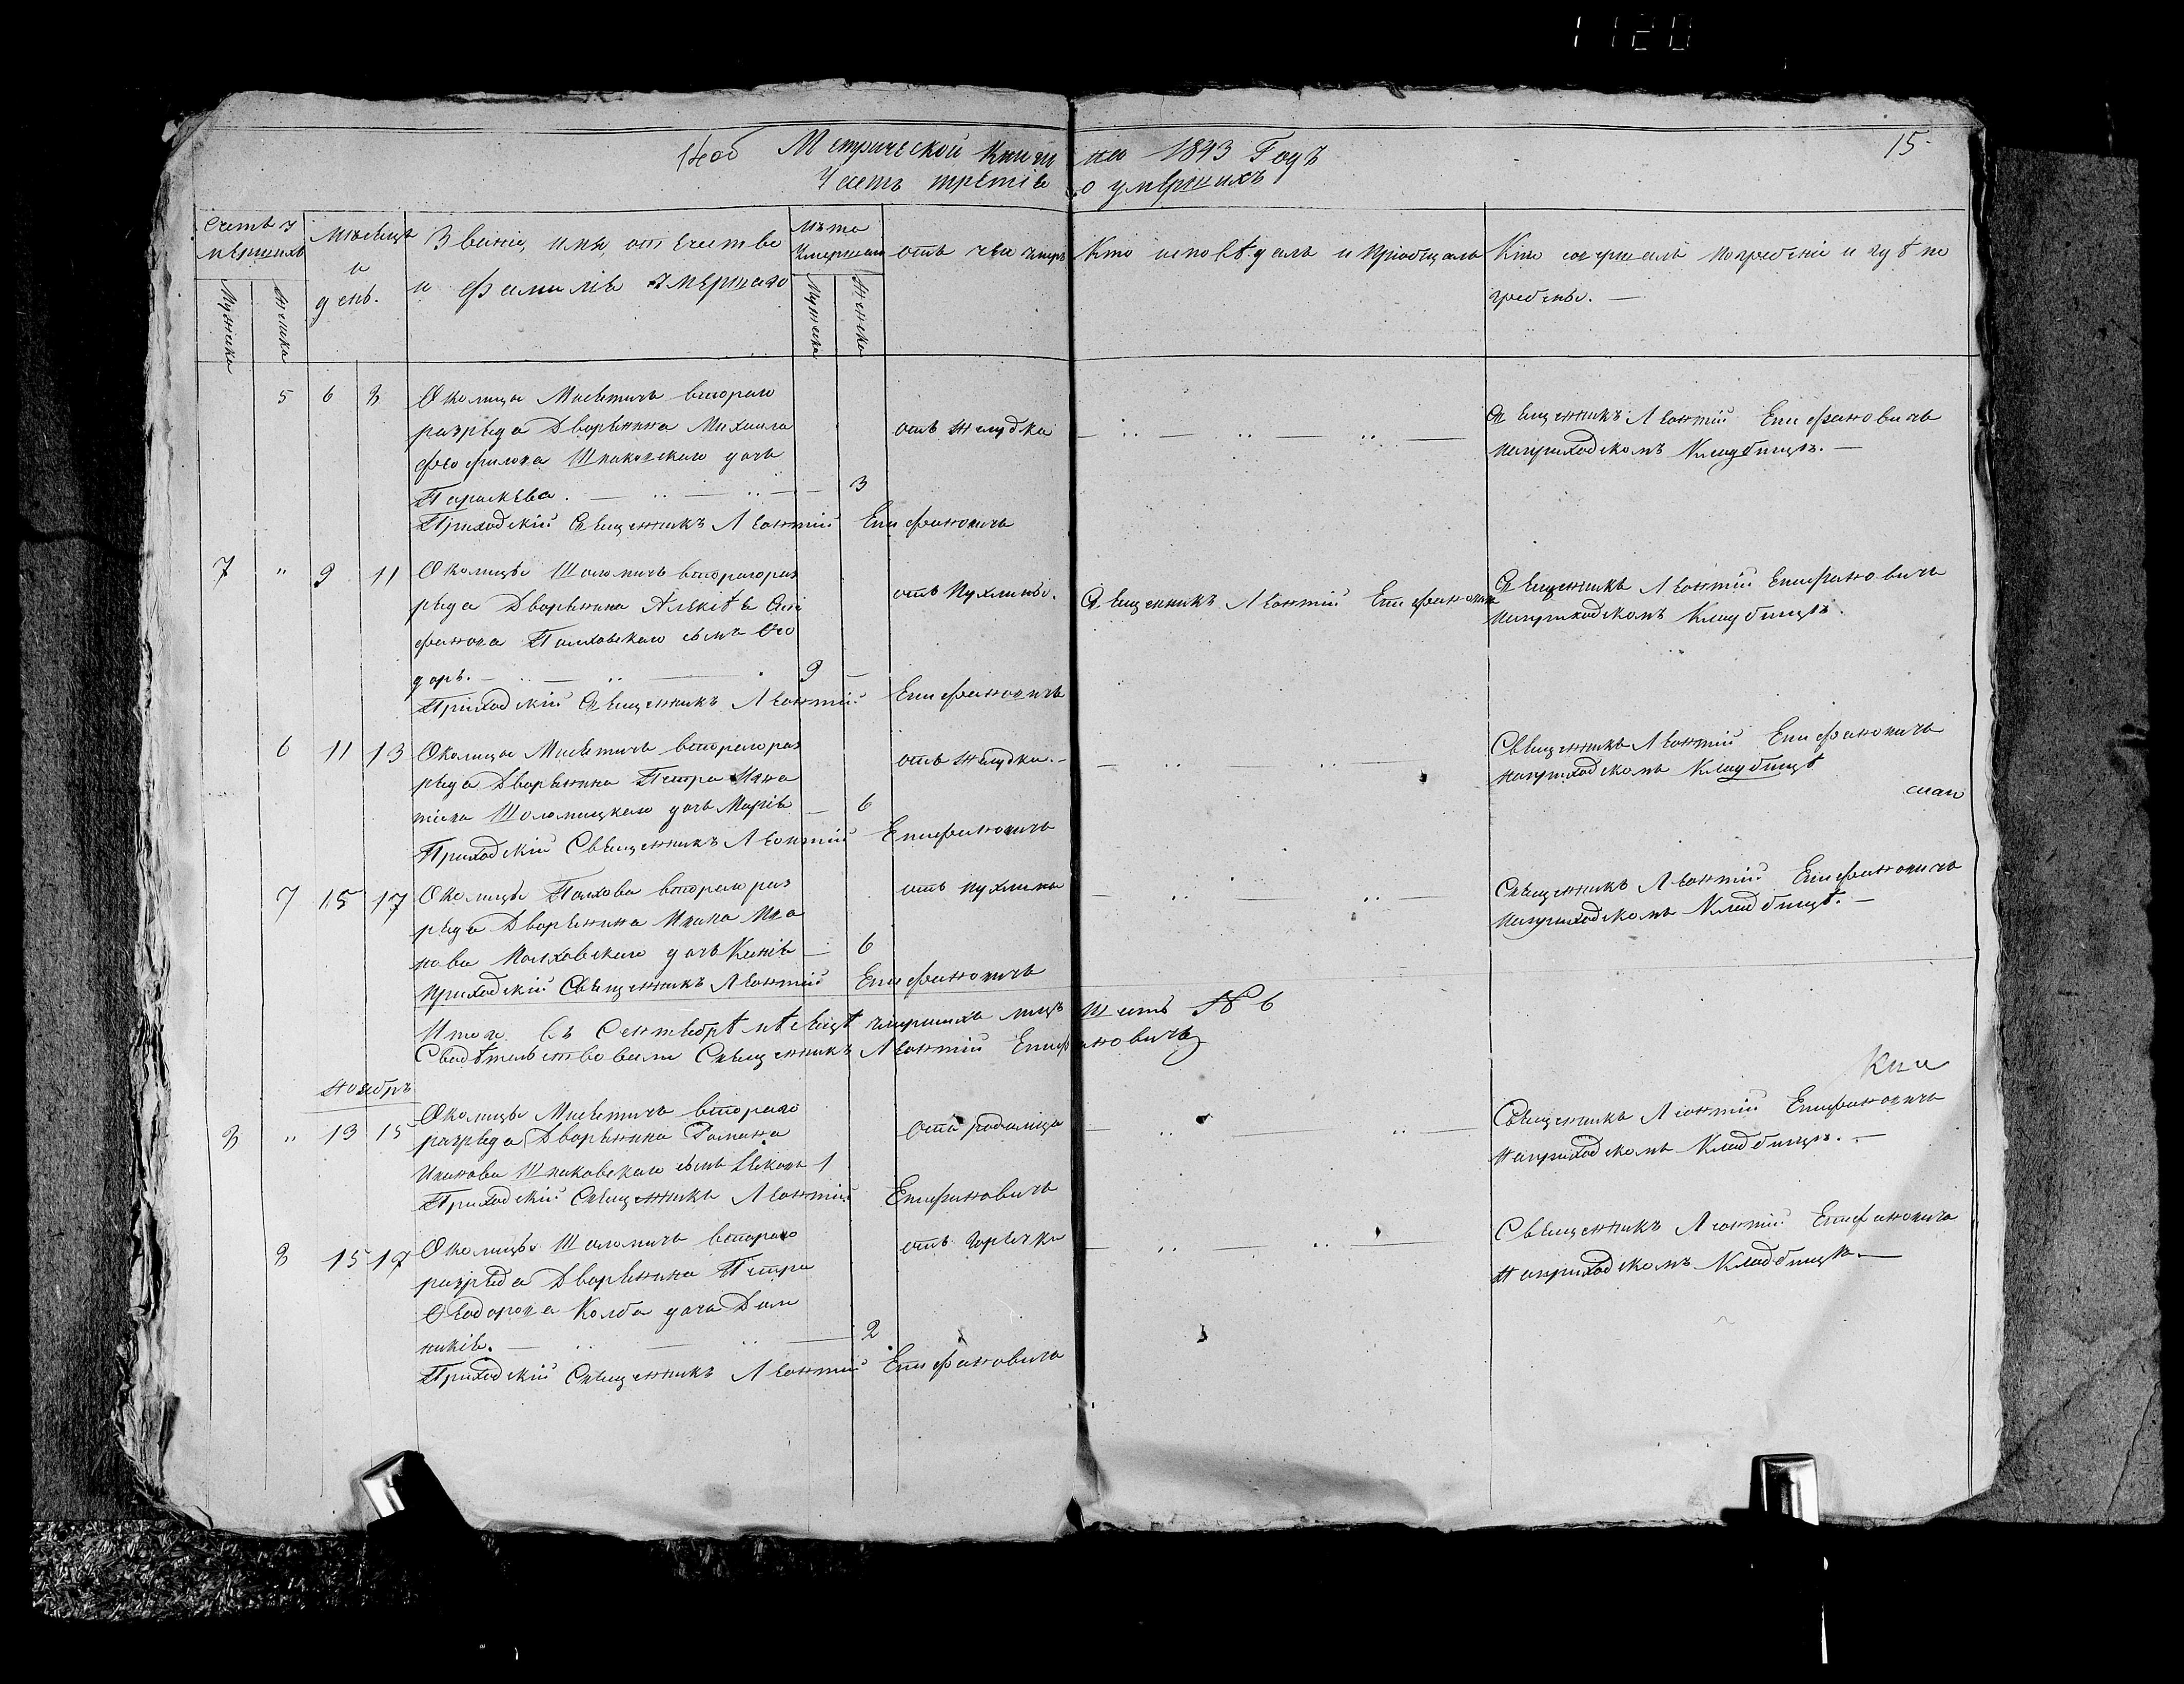 1120
14об Метрической Книги на 1843 Годъ 15
Часть третія о умершихъ
Счетъ умершихъ
Мужска
Женска
Мѣсяцъ и день.
Званіе, имя, отечество
и фамилія умершаго
Лѣта умершаго
Мужска
Женска
отъ чего умеръ
Кто исповѣдалъ и пріобщалъ
Кто совершалъ погребеніе и гдѣ погребены. —
5 6 8 Околицы Мисевичъ втораго
разряда Дворянина Михаила отъ желудка Священникъ Леонтій Епифановичъ
Феофилова Шпаковскаго дочь наприходскомъ Кладбищѣ. —
Параскева. 3
Приходскій Священникъ Леонтій Епифановичъ
7 " 9 11 Околицы Шоломичъ второгораз
ряда Дворянина Алексѣя Епи отъ пухлины. Священникъ Леонтій Епифановичъ Священникъ Леонтій Епифановичъ
фанова Полховскаго сынъ Фео наприходскомъ Кладбищѣ.
доръ. 9
Приходскій Священникъ Леонтій Епифановичъ
6 11 13 Околицы Мисевичъ второгораз отъ желудка. Священникъ Леонтій Епифановичъ
ряда Дворянина Петра наприходскомъ Кладбищѣ
Шоломицкаго дочь Марія 6
Приходскій Священникъ Леонтій Епифановичъ
7 15 17 Околицы Полхова второгораз отъ пухлины Священникъ Леонтій Епифановичъ
ряда Дворянина Ивана Ива наприходскомъ Кладбищѣ. —
нова Полховскаго дочь 6
Приходскій Священникъ Леонтій Епифановичъ
Итого въ Сентябрѣ мѣсяцѣ умершихъ лицъ шесть № 6
Свидѣтельствовали Священникъ Леонтій Епифановичъ
Кни
Ноябрь
8 " 13 15 Околицы Мисевичъ втораго Священникъ Леонтій Епифановичъ
разряда Дворянина Романа отъ родимца Наприходскомъ Кладбищѣ. —
Иванова Шпаковскаго сынъ Яковъ 1
Приходскій Священникъ Леонтій Епифановичъ
8 15 17 Околицы Шоломичъ втораго отъ горячки Священникъ Леонтій Епифановичъ
разряда Дворянина Петра Наприходскомъ Кладбищѣ —
Феодорова Колба дочь Доми
никія. 2
Приходскій Священникъ Леонтій Епифановичъ